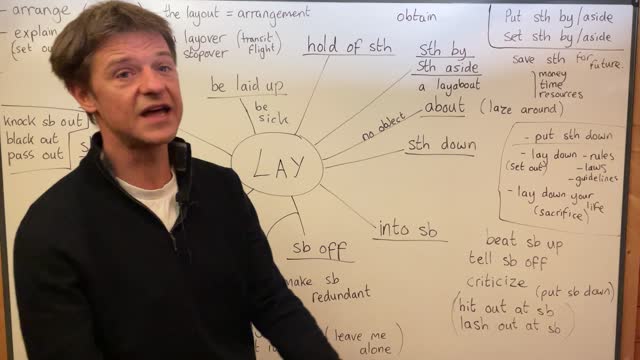 - arrange
the layout = arrangement
- explain
(set out)
layover
stopover
(transit
flight)
hold of sth
obtain
Put sth by/aside
Set sth by/aside
save sth for future.
money
time
resources
sth by
sth aside
a layabout
about (laze around)
no object
be laid up
be
sick
knock sb out
black out
pass out
LAY
sth down
- put sth down
- lay down - rules
(set out) - laws
- guidelines
- lay down your
life
(sacrifice)
into sb
beat sb up
tell sb off
criticize
(put sb down)
(hit out at sb
(lash out at sb)
sb off
make sb
redundant
(leave me
alone)